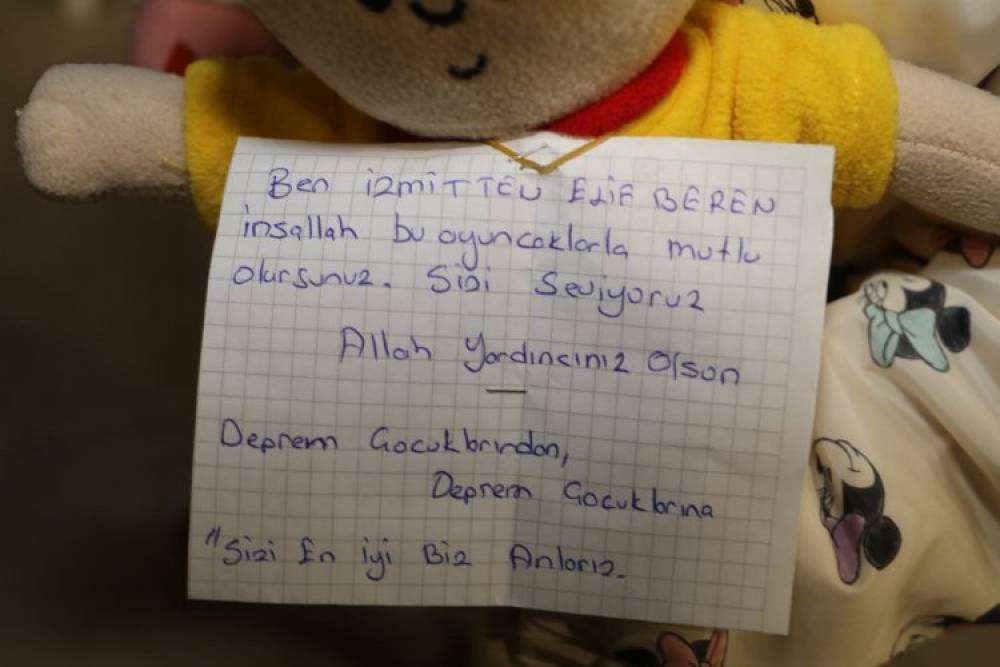 Ben izmiTTEN ELiF BEREN
insallah bu oyuncaklarla mutlu
olursunuz. Sizi Seviyoruz
Allah Yardımcınız Olsun
Deprem Çocuklarından,
Deprem Çocuklarına
"Sizi En iyi Biz Anlarız.